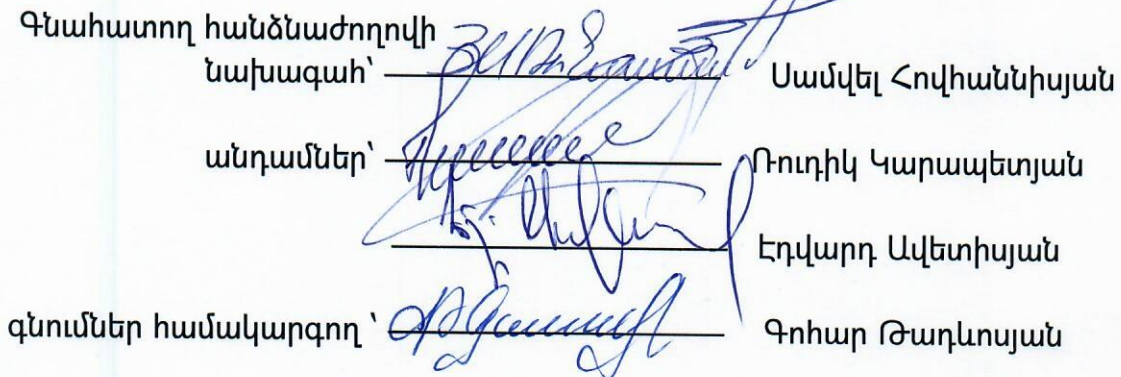 Գնահատող հանձնաժողովի
նախագահ՝ Սամվել Հովհաննիսյան
անդամներ՝ Ռուդիկ Կարապետյան
Էդվարդ Ավետիսյան
գնումներ համակարգող ՝ Գոհար Թադևոսյան